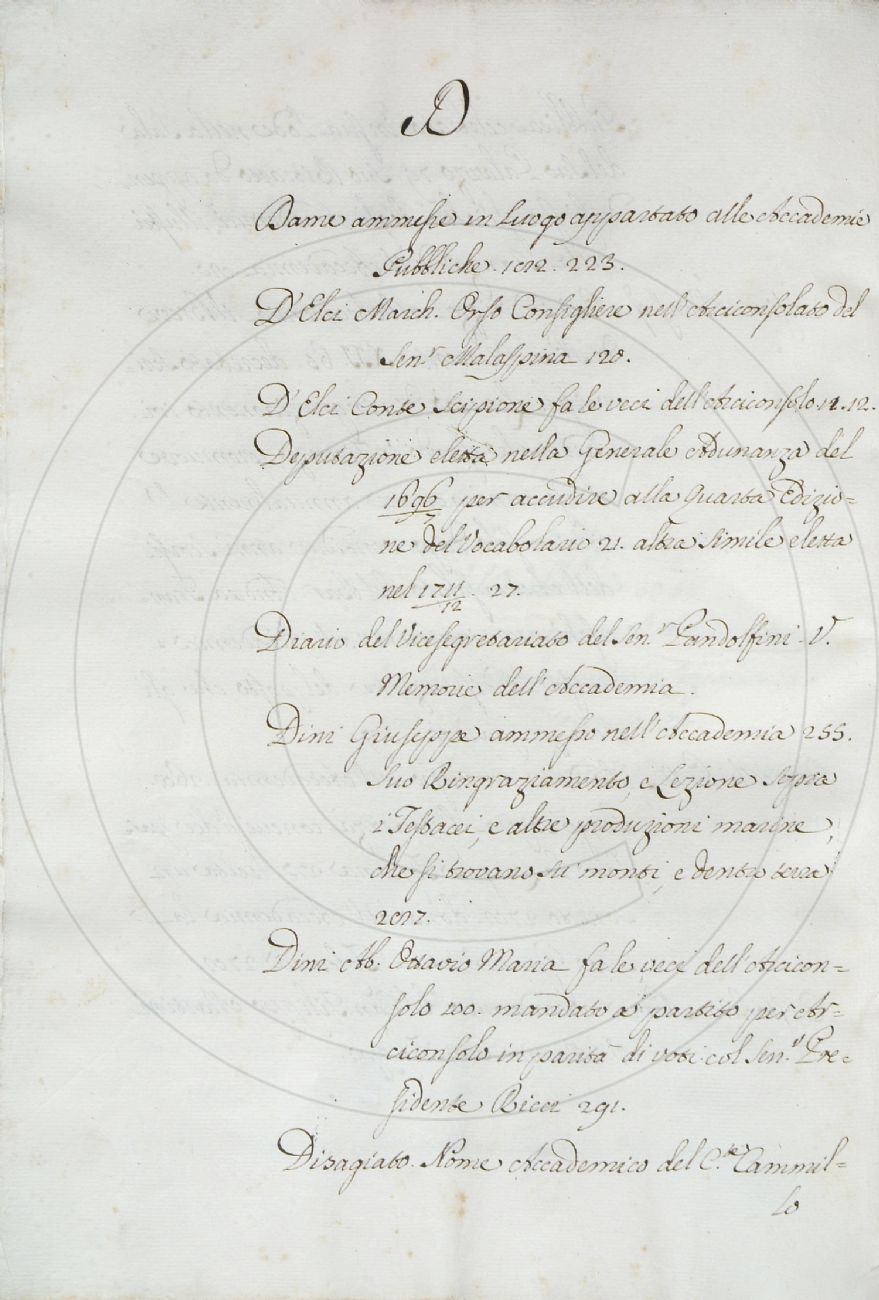 D
Dame ammesse in Luogo appartato alle Accademie
Pubbliche. 192. 223.
D'Elci March. Orso Consigliere nell'Arciconsolato del
Sen.r Malaspina 120.
D'Elci Conte Scipione fa le veci dell'Arciconsolo. 12.
Deputazione eletta nella Generale Adunanza del
1696/7 per accudire alla quarta Edizio=
ne del Vocabolario 21. altra simile eletta
nel 1711/12. 27.
Diario del Vicesegretariato del Sen.r Pandolfini. V.
Memorie dell'Accademia.
Dini Giuseppe ammesso nell'Accademia 255.
Suo Ringraziamento, e Lezione sopra
i Testacei, e altre produzioni marine,
che si trovano su' monti, e dentro terra
297.
Dini Ab. Ottavio Maria fa le veci dell'Arcicon=
solo 200. mandato a partito per Ar=
ciconsolo in parità di voti col Sen.r Pre=
sidente Ricci 291.
Disagiato. Nome Accademico del C.te Cammil=
lo